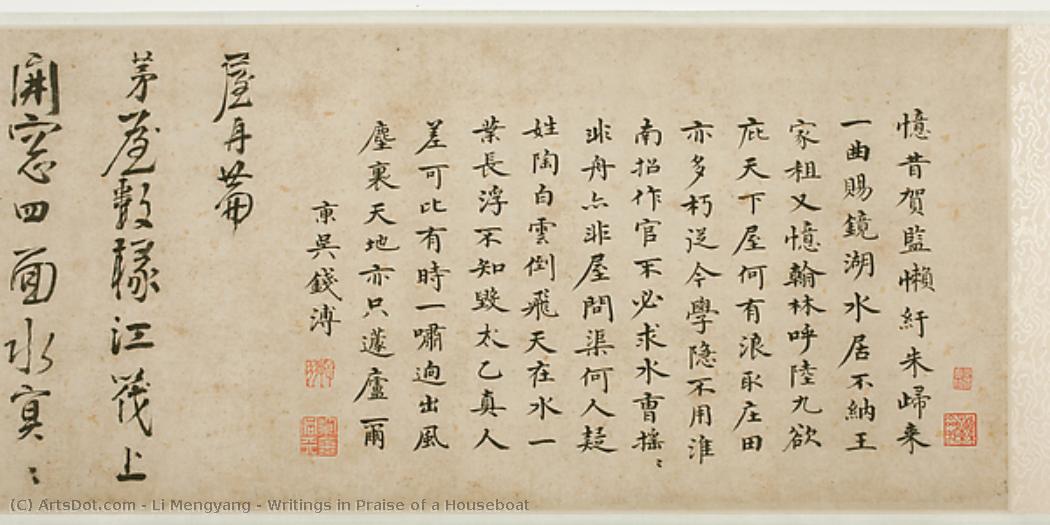 憶昔賀監懶紆朱歸来
一曲賜鏡湖水居不納王
家租又憶翰林呼陸九欲
庇天下屋何有浪取庄田
亦多朽從今學隱不用淮
南招作官不必求水曹揺〻
非舟亦非屋問渠何人疑
姓陶白雲倒飛天在水一
葉長浮不知毀太乙真人
差可比有時一嘯逈出風
塵裏天地亦只蘧廬爾
東吳錢溥
屋舟篇
茅屋數椽江筏上
開窓四面水㝠〻
(C) ArtsDot.com - Li Mengyang - Writings in Praise of a Houseboat